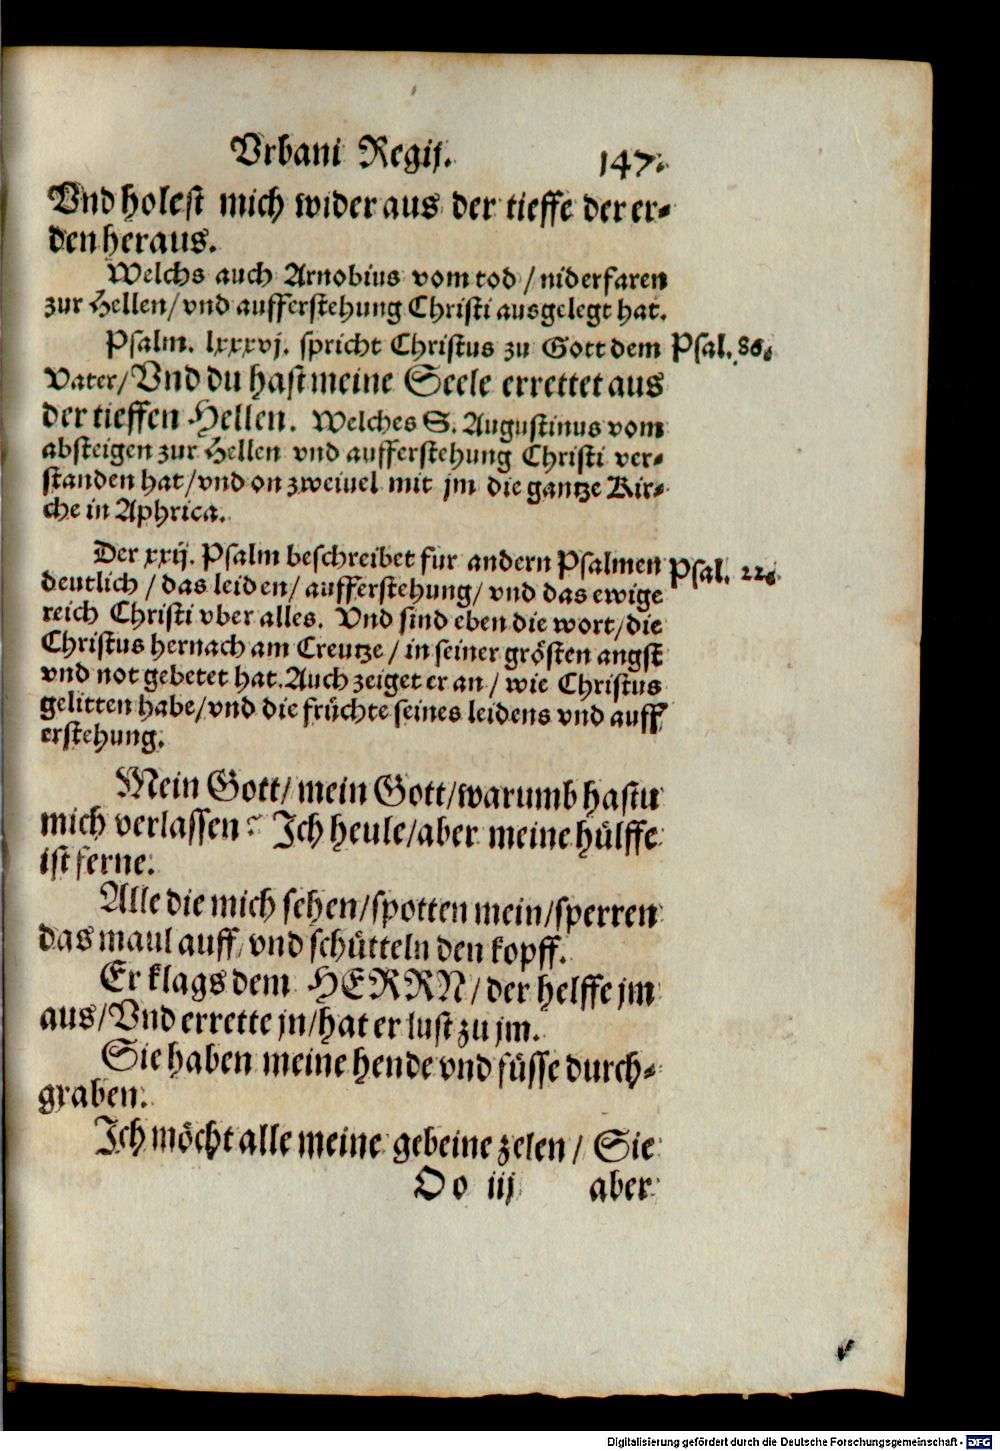 Vrbani Regij. 147.
Vnd holest mich wider aus der tieffe der er-
den heraus.
Welchs auch Arnobius vom tod / niderfaren
zur Hellen / vnd aufferstehung Christi ausgelegt hat.
Psalm. lxxxvj. spricht Christus zu Gott dem
Psal. 86.
Vater / Vnd du hast meine Seele errettet aus
der tieffen Hellen. Welches S. Augustinus vom
absteigen zur Hellen vnd aufferstehung Christi ver-
standen hat / vnd on zweiuel mit jm die gantze Kir-
che in Aphrica.
Der xxij. Psalm beschreibet fur andern Psalmen
Psal. 22.
deutlich / das leiden / aufferstehung / vnd das ewige
reich Christi vber alles. Vnd sind eben die wort / die
Christus hernach am Creutze / in seiner grösten angst
vnd not gebetet hat. Auch zeiget er an / wie Christus
gelitten habe / vnd die früchte seines leidens vnd auff
erstehung.
Mein Gott / mein Gott / warumb hastu
mich verlassen? Ich heule / aber meine hülffe
ist ferne.
Alle die mich sehen / spotten mein / sperren
das maul auff / vnd schütteln den kopff.
Er klags dem HERRN / der helffe jm
aus / Vnd errette jn / hat er lust zu jm.
Sie haben meine hende vnd füsse durch-
graben.
Ich möcht alle meine gebeine zelen / Sie
Oo iij aber
Digitalisierung gefördert durch die Deutsche Forschungsgemeinschaft - DFG